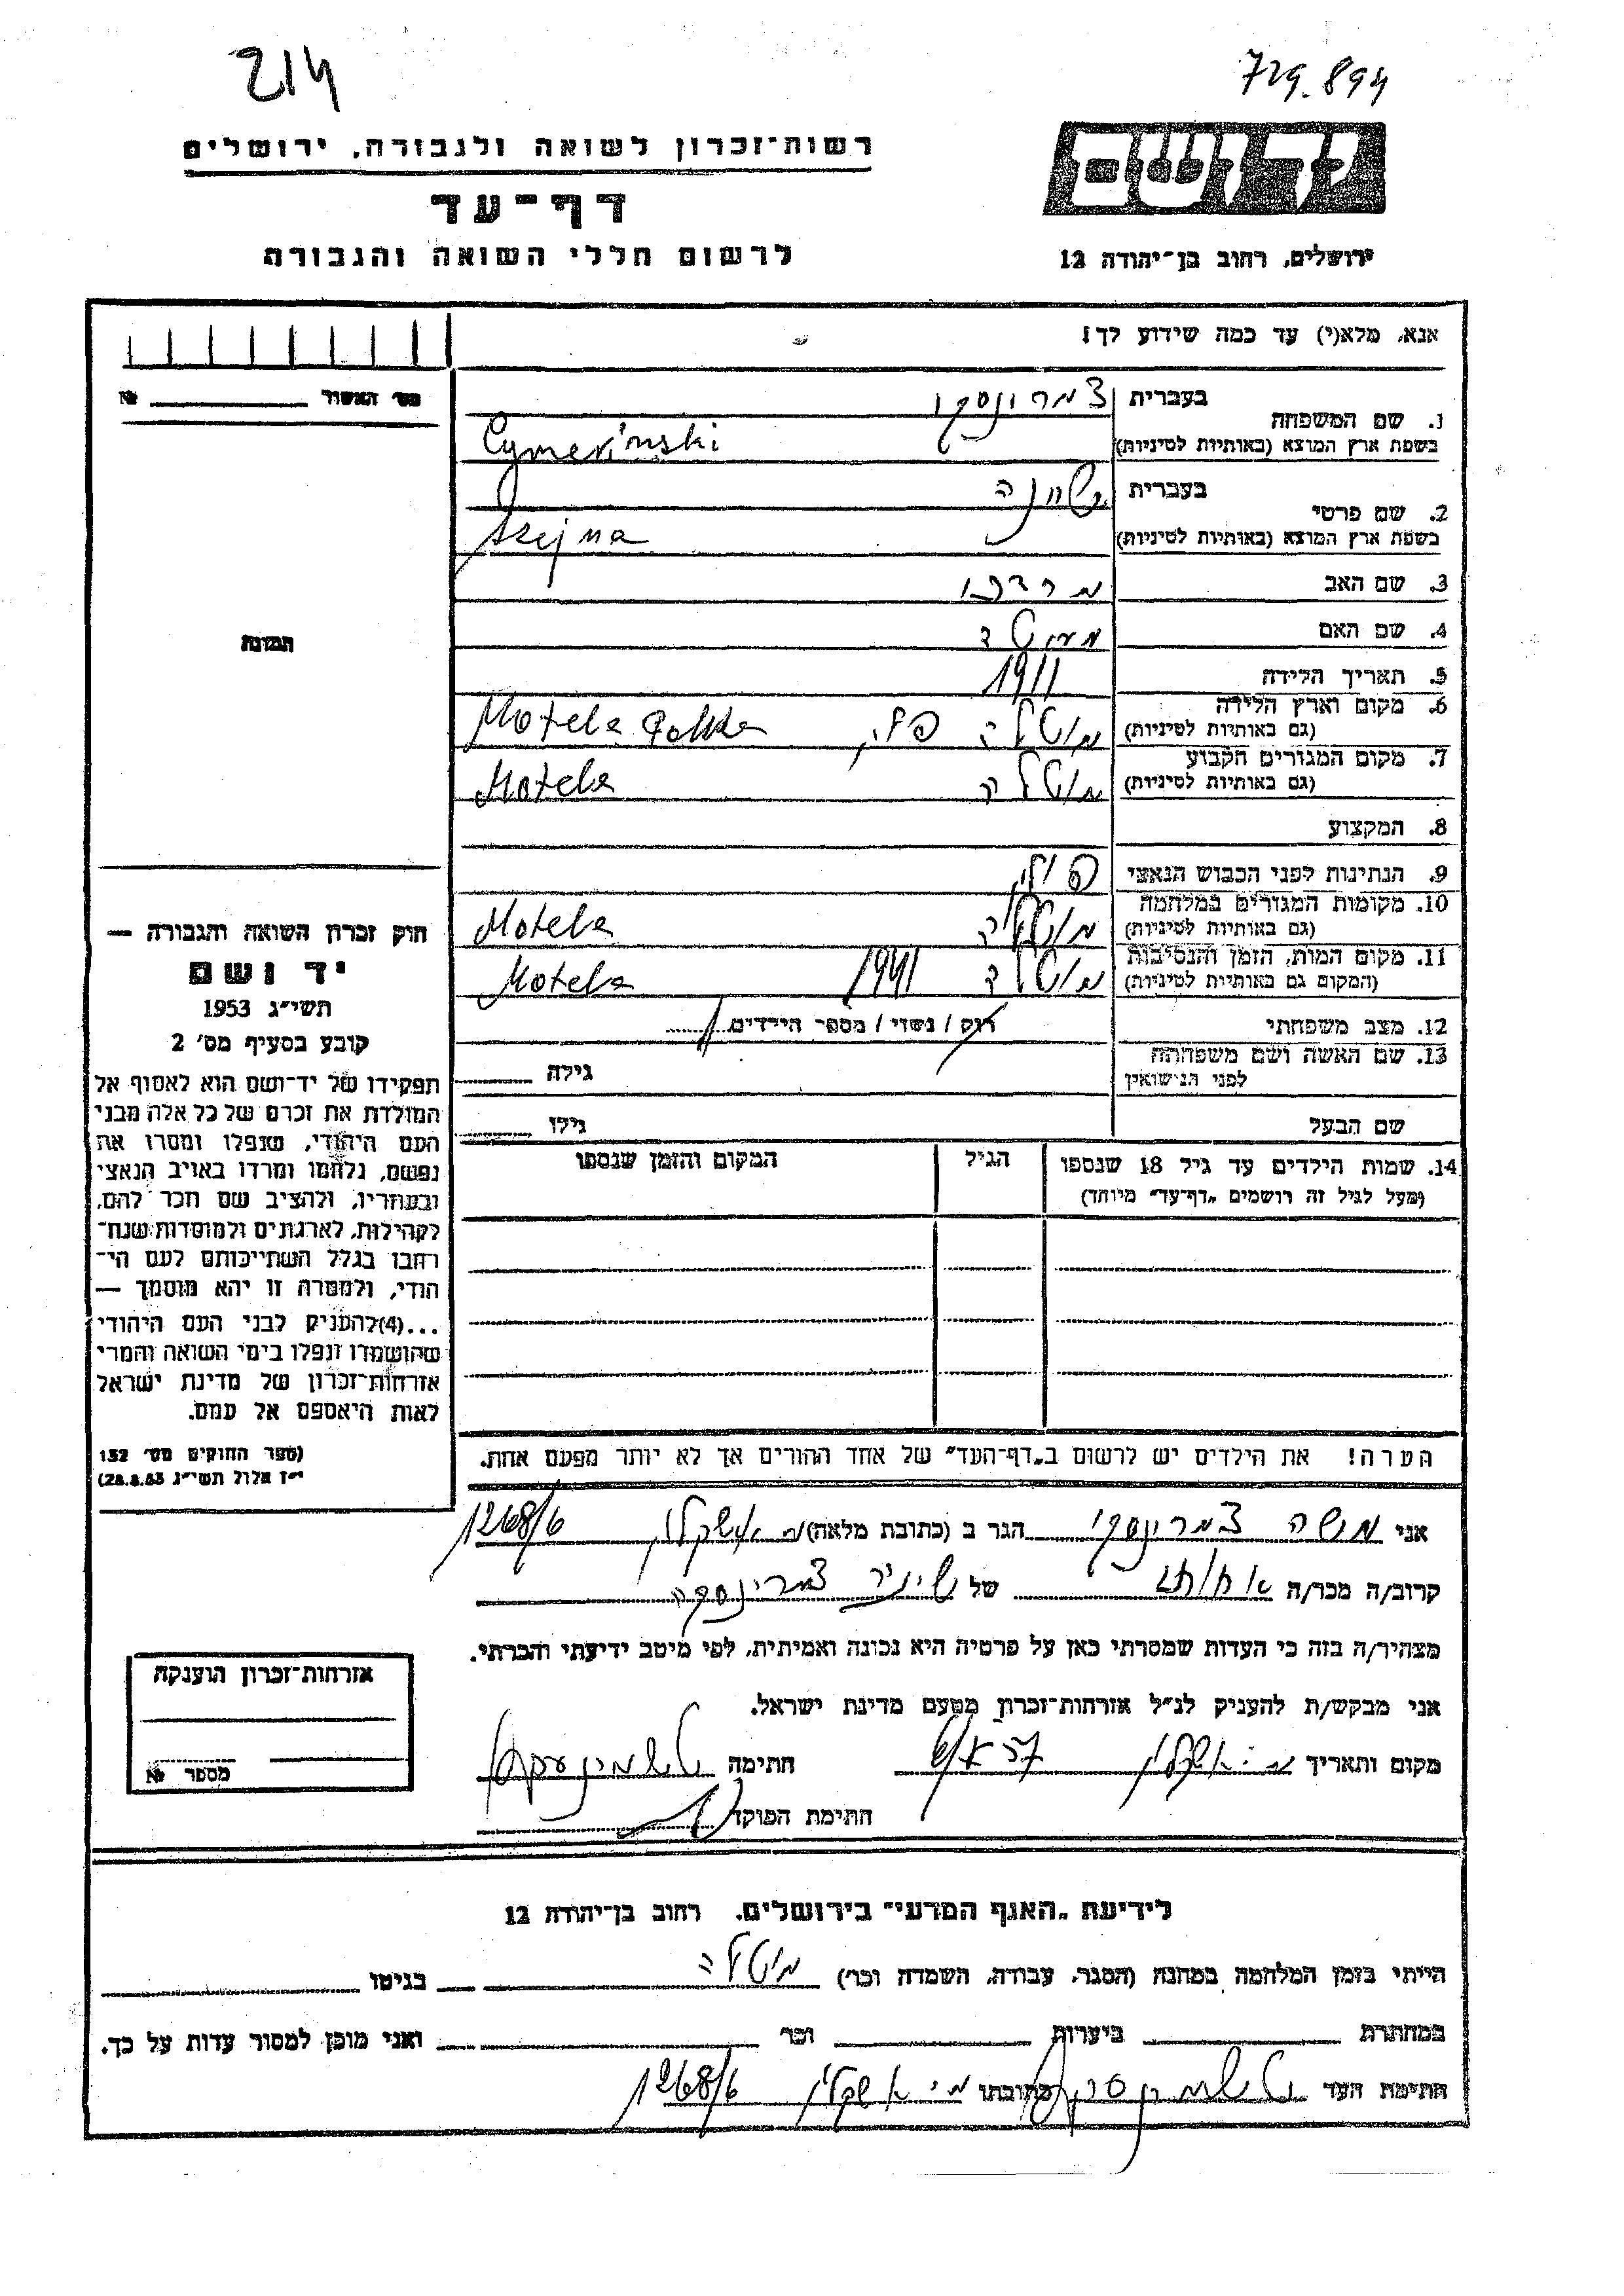 214
729.894
רשות־זכרון לשואה ולגבורה, ירושלים
יד ושם
דף־עד
לרשום חללי השואה והגבורה
ירושלים, רחוב בן־יהודה 12
אנא, מלא(י) עד כמה שידוע לך!
מס׳ האשור № ______
1. שם המשפחה
בעברית צמרונסקי
בשפת ארץ המוצא (באותיות לטיניות) Cymerinski
2. שם פרטי
בעברית
בשפת ארץ המוצא (באותיות לטיניות) Szejna
3. שם האב מרדכי
4. שם האם
5. תאריך הלידה 1911
6. מקום וארץ הלידה
(גם באותיות לטיניות) מוטלה פולין Motele Polska
7. מקום המגורים הקבוע
(גם באותיות לטיניות) מוטלה Motele
8. המקצוע
9. הנתינות לפני הכבוש הנאצי פולין
10. מקומות המגורים במלחמה
(גם באותיות לטיניות) מוטלה Motele
11. מקום המות, הזמן והנסיבות
(המקום גם באותיות לטיניות) מוטלה 1941 Motele
12. מצב משפחתי רוק / נשוי / מספר הילדים
13. שם האשה ושם משפחתה
לפני הנישואין
גילה
שם הבעל גילו
14. שמות הילדים עד גיל 18 שנספו הגיל המקום והזמן שנספו
(מעל לגיל זה רושמים „דף־עד״ מיוחד)
הערה! את הילדים יש לרשום ב„דף־העד״ של אחד ההורים אך לא יותר מפעם אחת.
תמונה
חוק זכרון השואה והגבורה —
יד ושם
תשי״ג 1953
קובע בסעיף מס׳ 2
תפקידו של יד־ושם הוא לאסוף אל
המולדת את זכרם של כל אלה מבני
העם היהודי, שנפלו ומסרו את
נפשם, נלחמו ומרדו באויב הנאצי
ובעוזריו, ולהציב שם וזכר להם,
לקהילות, לארגונים ולמוסדות שנח־
רבו בגלל השתייכותם לעם הי־
הודי, ולמטרה זו יהא מוסמך —
...(4)להעניק לבני העם היהודי
שהושמדו ונפלו בימי השואה והמרי
אזרחות־זכרון של מדינת ישראל
לאות היאספם אל עמם.
(ספר החוקים מס׳ 132
י״ז אלול תשי״ג 28.8.53)
אני משה צמרונסקי הגר ב (כתובת מלאה) אשקלון 1268/6
קרוב/ה מכר/ה אחותי של צמרינסקה
מצהיר/ה בזה כי העדות שמסרתי כאן על פרטיה היא נכונה ואמיתית, לפי מיטב ידיעתי והכרתי.
אני מבקש/ת להעניק לנ״ל אזרחות־זכרון מטעם מדינת ישראל.
מקום ותאריך אשקלון חתימה
חתימת הפוקד
אזרחות־זכרון הוענקה
מספר №
לידיעת „האגף המדעי״ בירושלים, רחוב בן־יהודה 12
הייתי בזמן המלחמה במחנה (הסגר, עבודה, השמדה וכו׳) מוטלה בגיטו
במחתרת ביערות וכו׳ ואני מוכן למסור עדות על כך.
חתימת העד כתובתו אשקלון 1268/6